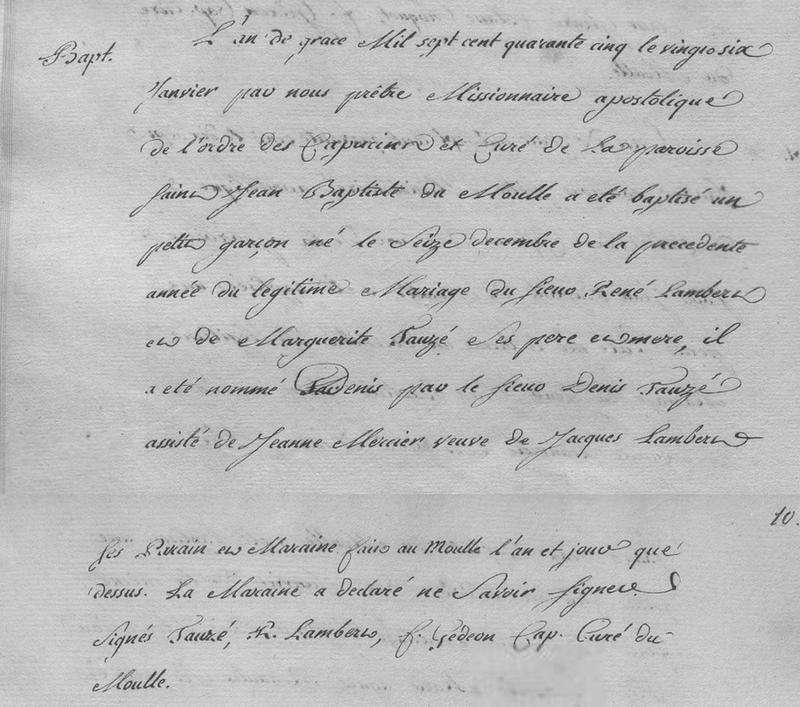 Bapt.
L'an de grace Mil sept cent quarante cinq le vingt six
Janvier par nous prêtre Missionnaire apostolique
de l'ordre des Capucins et Curé de La paroisse
Saint Jean Baptiste du Moulle a eté baptisé un
petit garçon né le Seize decembre de la precedente
année du legitime Mariage du Sieur René Lambert
et de Marguerite Fauzé Ses pere et mere, il
a eté nommé Denis par le Sieur Denis Fauzé
assisté de Jeanne Mercier veuve de Jacques Lambert
10.
Ses Parain et Maraine fait au Moulle l'an et jour que
dessus. La Maraine a declaré ne Savoir Signer.
Signés Fauzé, R. Lambert, f. Gédeon Cap. Curé du
Moulle.